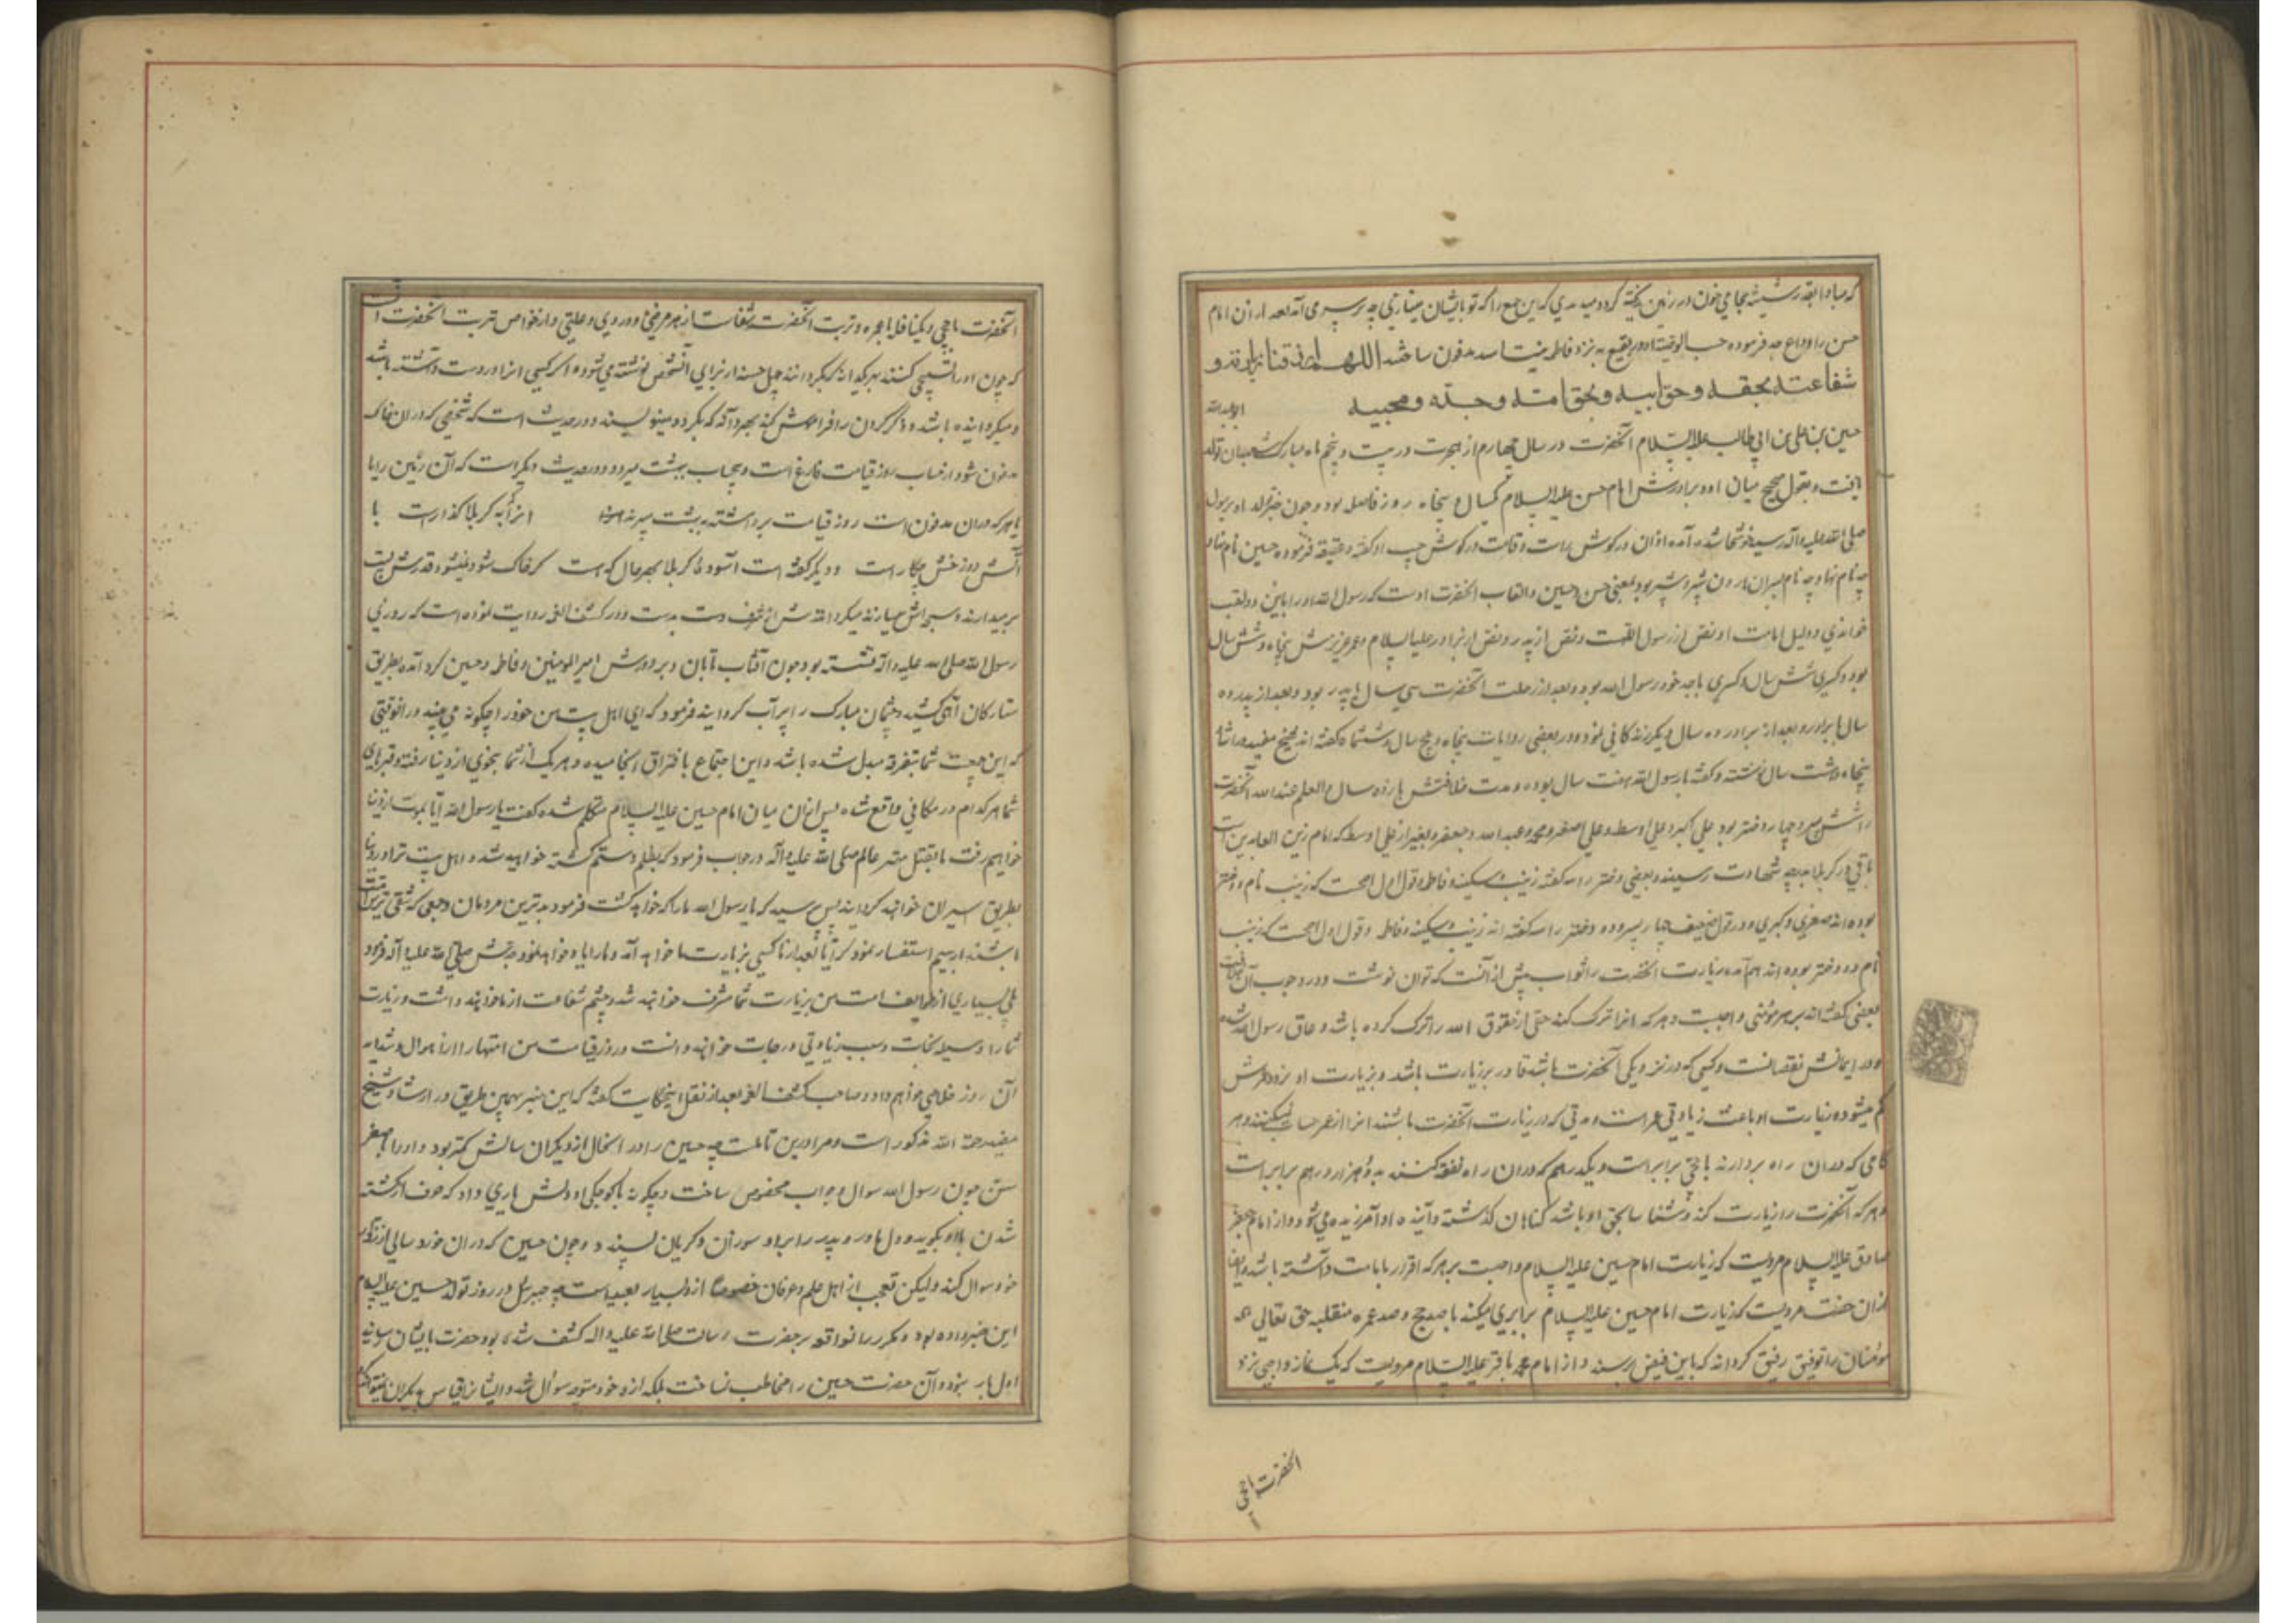 که مبادا بقدر شیشه حجامی خون در زمین ریخته کردد میدی که این جمع را که تو بایشان مینازی چه بر سر می آمد بعد از آن امام
حسن را وداع فرموده حسب الوصیة او در بقیع به نزد فاطمه بنت اسد مدفون ساختند اللهم ارزقنا زیارته و
شفاعته بحقه و حق ابیه و بحق امه و جده و محبیه ابو عبدالله
حسین بن علی بن ابی طالب علیه السلام آنحضرت در سال چهارم از هجرت در بیست و پنجم ماه مبارک شعبان تولد
یافت و بقول صحیح میان او و برادرش امام حسن علیه السلام یکسال و پنجاه روز فاصله بود و چون خبر تولد او برسول
صلی الله علیه و آله رسید خوشحال شده آمده اذان در کوش راست و قامت در کوش چپ او گفته و عقیقه فرموده حسین نام نهاد
چه نام نهاد چه نام پسران هارون شبر و شبیر بود بمعنی حسن و حسین و القاب آنحضرت اوست که رسول الله او را باین دو لقب
خواندی و دلیل امامت او نص از رسول الله است و نص از پدر و نص از برادر علیه السلام و عمر عزیزش پنجاه و شش سال
بود و کسری شش سال و کسری با جد خود رسول الله بود و بعد از رحلت آنحضرت سی سال با پدر بود و بعد از پدر ده
سال با برادر و بعد از برادر ده سال دیکر زندکانی نمود و در بعضی روایات پنجاه و پنج سال و شش ماه گفته اند شیخ مفید در ارشاد
پنجاه و هشت سال نوشته و گفته با رسول الله هفت سال بوده و مدت خلافتش یازده سال و العلم عند الله آنحضرت
را شش پسر و چهار دختر بود علی اکبر و علی اوسط و علی اصغر و محمد و عبد الله و جعفر و بغیر از علی اوسط که امام زین العابدین است
باقی در کربلا بدرجه شهادت رسیدند و بعضی دختر را سه گفته زینب و سکینه و فاطمه و قول اول اصح است که زینب نام دو دختر
بوده اند صغری و کبری و در قول ضعیف چهار پسر و دو دختر را سه گفته اند زینب و سکینه و فاطمه و قول اول اصح است که زینب
نام دو دختر بوده اند هم آمده زیارت آنحضرت را ثواب بیش از آنست که توان نوشت و در وجوب آن
بعضی گفته اند بر هر مؤمنی واجبست و هر که آنرا ترک کند حقی از حقوق الله را ترک کرده باشد و عاق رسول الله شده
و در ایمانش نقصانست و کسی که در نزدیکی آنحضرت باشد قادر بر زیارت باشد و بزیارت او نرود عمرش
کم میشود و زیارت او باعث زیادتی عمر است و مدتی که در زیارت آنحضرت باشند انرا از عمر حساب نمیکنند و هر
کامی که در آن راه بردارند با حجی برابر است و یکدرهم که در آن راه نفقه کنند به ده هزار درهم برابر است
و هر که آنحضرت را زیارت کند و شناسا بحق او باشد کناهان کذشته و آینده او آمرزیده می شود و از امام جعفر
صادق علیه السلام مرویست که زیارت امام حسین علیه السلام واجبست بر هر که اقرار بامامت داشته باشد و ایضا
از آن حضرت مرویست که زیارت امام حسین علیه السلام برابری میکند با صد حج و صد عمره متقبله حق تعالی همه
مومنان را توفیق رفیق کرداند که باین فیض برسند و از امام محمد باقر علیه السلام مرویست که یک نماز واجبی نزد
آنحضرت باحجی
آنحضرت باحجی و یکنافله باعمره و تربت آنحضرت شفاست از هر مرضی و دردی و علتی و از خواص تربت آنحضرت آنست
که چون او را تسبیح کنند بهر یکدانه که بکردانند چهل حسنه از برای آنشخص نوشته می شود و اکر کسی انرا در دست داشته باشد
و میکردانیده باشد و ذکر کردن را فراموش کند بمجرد آنکه بکرد و مینویسند و در حدیث است که شخصی که در ان خاک
مدفون شود از حساب روز قیامت فارغ است و بیحساب ببهشت میرود و در حدیث دیکر است که آن زمین را با
با هر که در ان مدفون است روز قیامت برداشته به بهشت میبرند آنرا که بکربلا کذارست با
آتش دوزخش چکار است و دیکر گفته است آسوده کربلا بهر حال که است کر خاک شود نمیشود قدرش پست
بر میدارند و سبحه اش میسازند میکردانندش از شرف دست بدست و در کشف الغمه روایت نموده است که روزی
رسول الله صلی الله علیه و اله نشسته بود چون آفتاب تابان و بر دورش امیر المومنین و فاطمه و حسین کرد آمده بطریق
ستارکان آهی کشید و چشمان مبارک را پر آب کردانید فرمود که ای اهل بیت من خود را چکونه می بینید در آنوقتی
که این جمعیت شما بتفرقه مبدل شده باشد و این اجتماع بافتراق انجامیده و هر یک از شما بنحوی از دنیا رفته و قبرهای
شما هر کدام در مکانی واقع شده پس از ان میان امام حسین علیه السلام متکلم شده گفت یا رسول الله آیا بموت از دنیا
خواهیم رفت یا بقتل مهتر عالم صلی الله علیه و آله در جواب فرمود که بظلم و ستم کشته خواهید شد و اهل بیت ترا در دنیا
بطریق اسیران خواهند کردانید پس پرسید که یا رسول الله ما را که خواهد کشت فرمود بدترین مردمان و جمعی که شقی ترین امت
باشند باز پرسیم استفسار نمود که آیا بعد از ما کسی بزیارت ما خواهد آمد و ما را یاد خواهد نمود جدش صلی الله علیه و آله فرمود
بلی بسیاری از طوایف امت من بزیارت شما مشرف خواهند شد و چشم شفاعت از ما خواهند داشت و زیارت
شما را وسیله نجات و سبب زیادتی درجات خواهند دانست و در روز قیامت من اینها را از اهوال و شداید
آن روز خلاصی خواهم داد و صاحب کشف الغمه بعد از نقل اینحکایت گفته که این خبر بهمین طریق در ارشاد شیخ
مفید رحمه الله مذکور است و مرا در این تأملست چه حسین را در آنحال از دیکران سالش کمتر بود و او را بصغر
سن چون رسول الله سوال و جواب مخصوص ساخت و چکونه با کوچکی او دلش یاری داد که حرف از کشته
شدن با او بکوید و دل مادر و پدر را بر او سوزان و کریان پسندد و چون حسین که در ان خورد سالی از
خود سوال کند و لیکن تعجب از اهل علم و عرفان خصوصا از و بسیار بعید است چه جبرئیل در روز تولد حسین علیه السلام
این خبر داده بود و مکرر این واقعه بر حضرت رسالت صلی الله علیه و اله کشف شده بود حضرت بایشان رسانید
اول بار نبود و آن حضرت حسین را مخاطب نساخت بلکه از و خود متوجه سوال شد و ایشان را قیاس بدیکران نمیتوان کرد